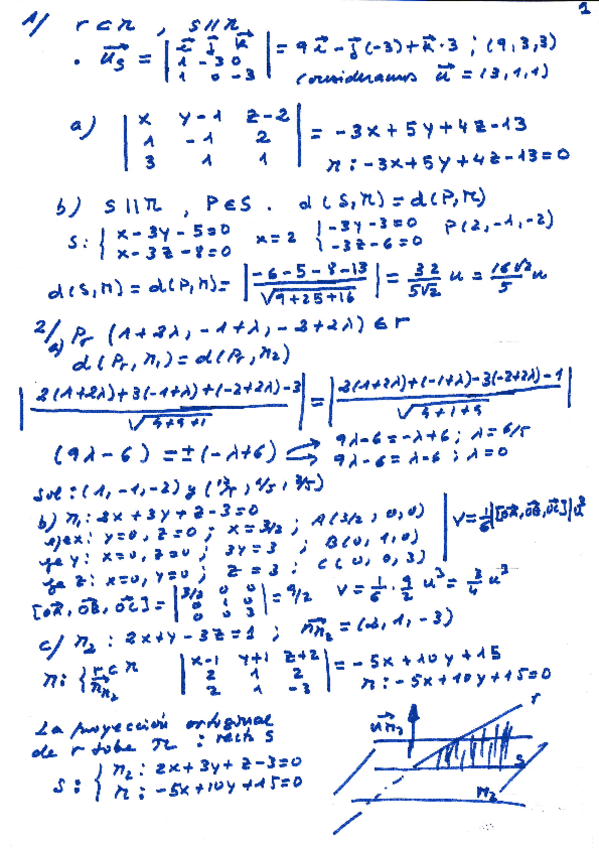 1
1/ r ⊂ π , s ∥ π
. u⃗s = | i⃗ j⃗ k⃗ ; 1 -3 0 ; 1 0 -3 | = 9 i⃗ - j⃗(-3) + k⃗·3 ; (9,3,3)
consideramos u⃗ = (3,1,1)
a) | x y-1 z-2 ; 1 -1 2 ; 3 1 1 | = -3x+5y+4z-13
π: -3x+5y+4z-13=0
b) s ∥ π , P∈s . d(s,π)=d(P,π)
s: { x-3y-5=0 ; x-3z-8=0 x=2 { -3y-3=0 ; -3z-6=0 P(2,-1,-2)
d(s,π)=d(P,π)= | -6-5-8-13 / √9+25+16 | = 32/5√2 u = 16√2/5 u
2/ a) Pr (1+2λ, -1+λ, -2+2λ) ∈ r
d(Pr,π1)=d(Pr,π2)
| 2(1+2λ)+3(-1+λ)+(-2+2λ)-3 / √4+9+1 | = | 2(1+2λ)+(-1+λ)-3(-2+2λ)-1 / √4+1+9 |
(9λ-6) = ±(-λ+6) 9λ-6=-λ+6; λ=6/5
9λ-6=λ-6; λ=0
sol: (1,-1,-2) y (17/5, 1/5, 2/5)
b) π1: 2x+3y+z-3=0
eje x: y=0, z=0; x=3/2; A(3/2,0,0) V=1/6|[OA⃗,OB⃗,OC⃗]|u³
eje y: x=0, z=0; 3y=3 B(0,1,0)
eje z: x=0, y=0; z=3; C(0,0,3)
[OA⃗,OB⃗,OC⃗]= | 3/2 0 0 ; 0 1 0 ; 0 0 3 | = 9/2 V = 1/6 · 9/2 u³ = 3/4 u³
c/ π2: 2x+y-3z=1; n⃗π2=(2,1,-3)
π: { r⊂π ; n⃗π2 | x-1 y+1 z+2 ; 2 1 2 ; 2 1 -3 | = -5x+10y+15
π: -5x+10y+15=0
La proyección ortogonal
de r sobre π : recta s
s: { π2: 2x+3y+z-3=0 ; π: -5x+10y+15=0
r
u⃗π2
s
π2